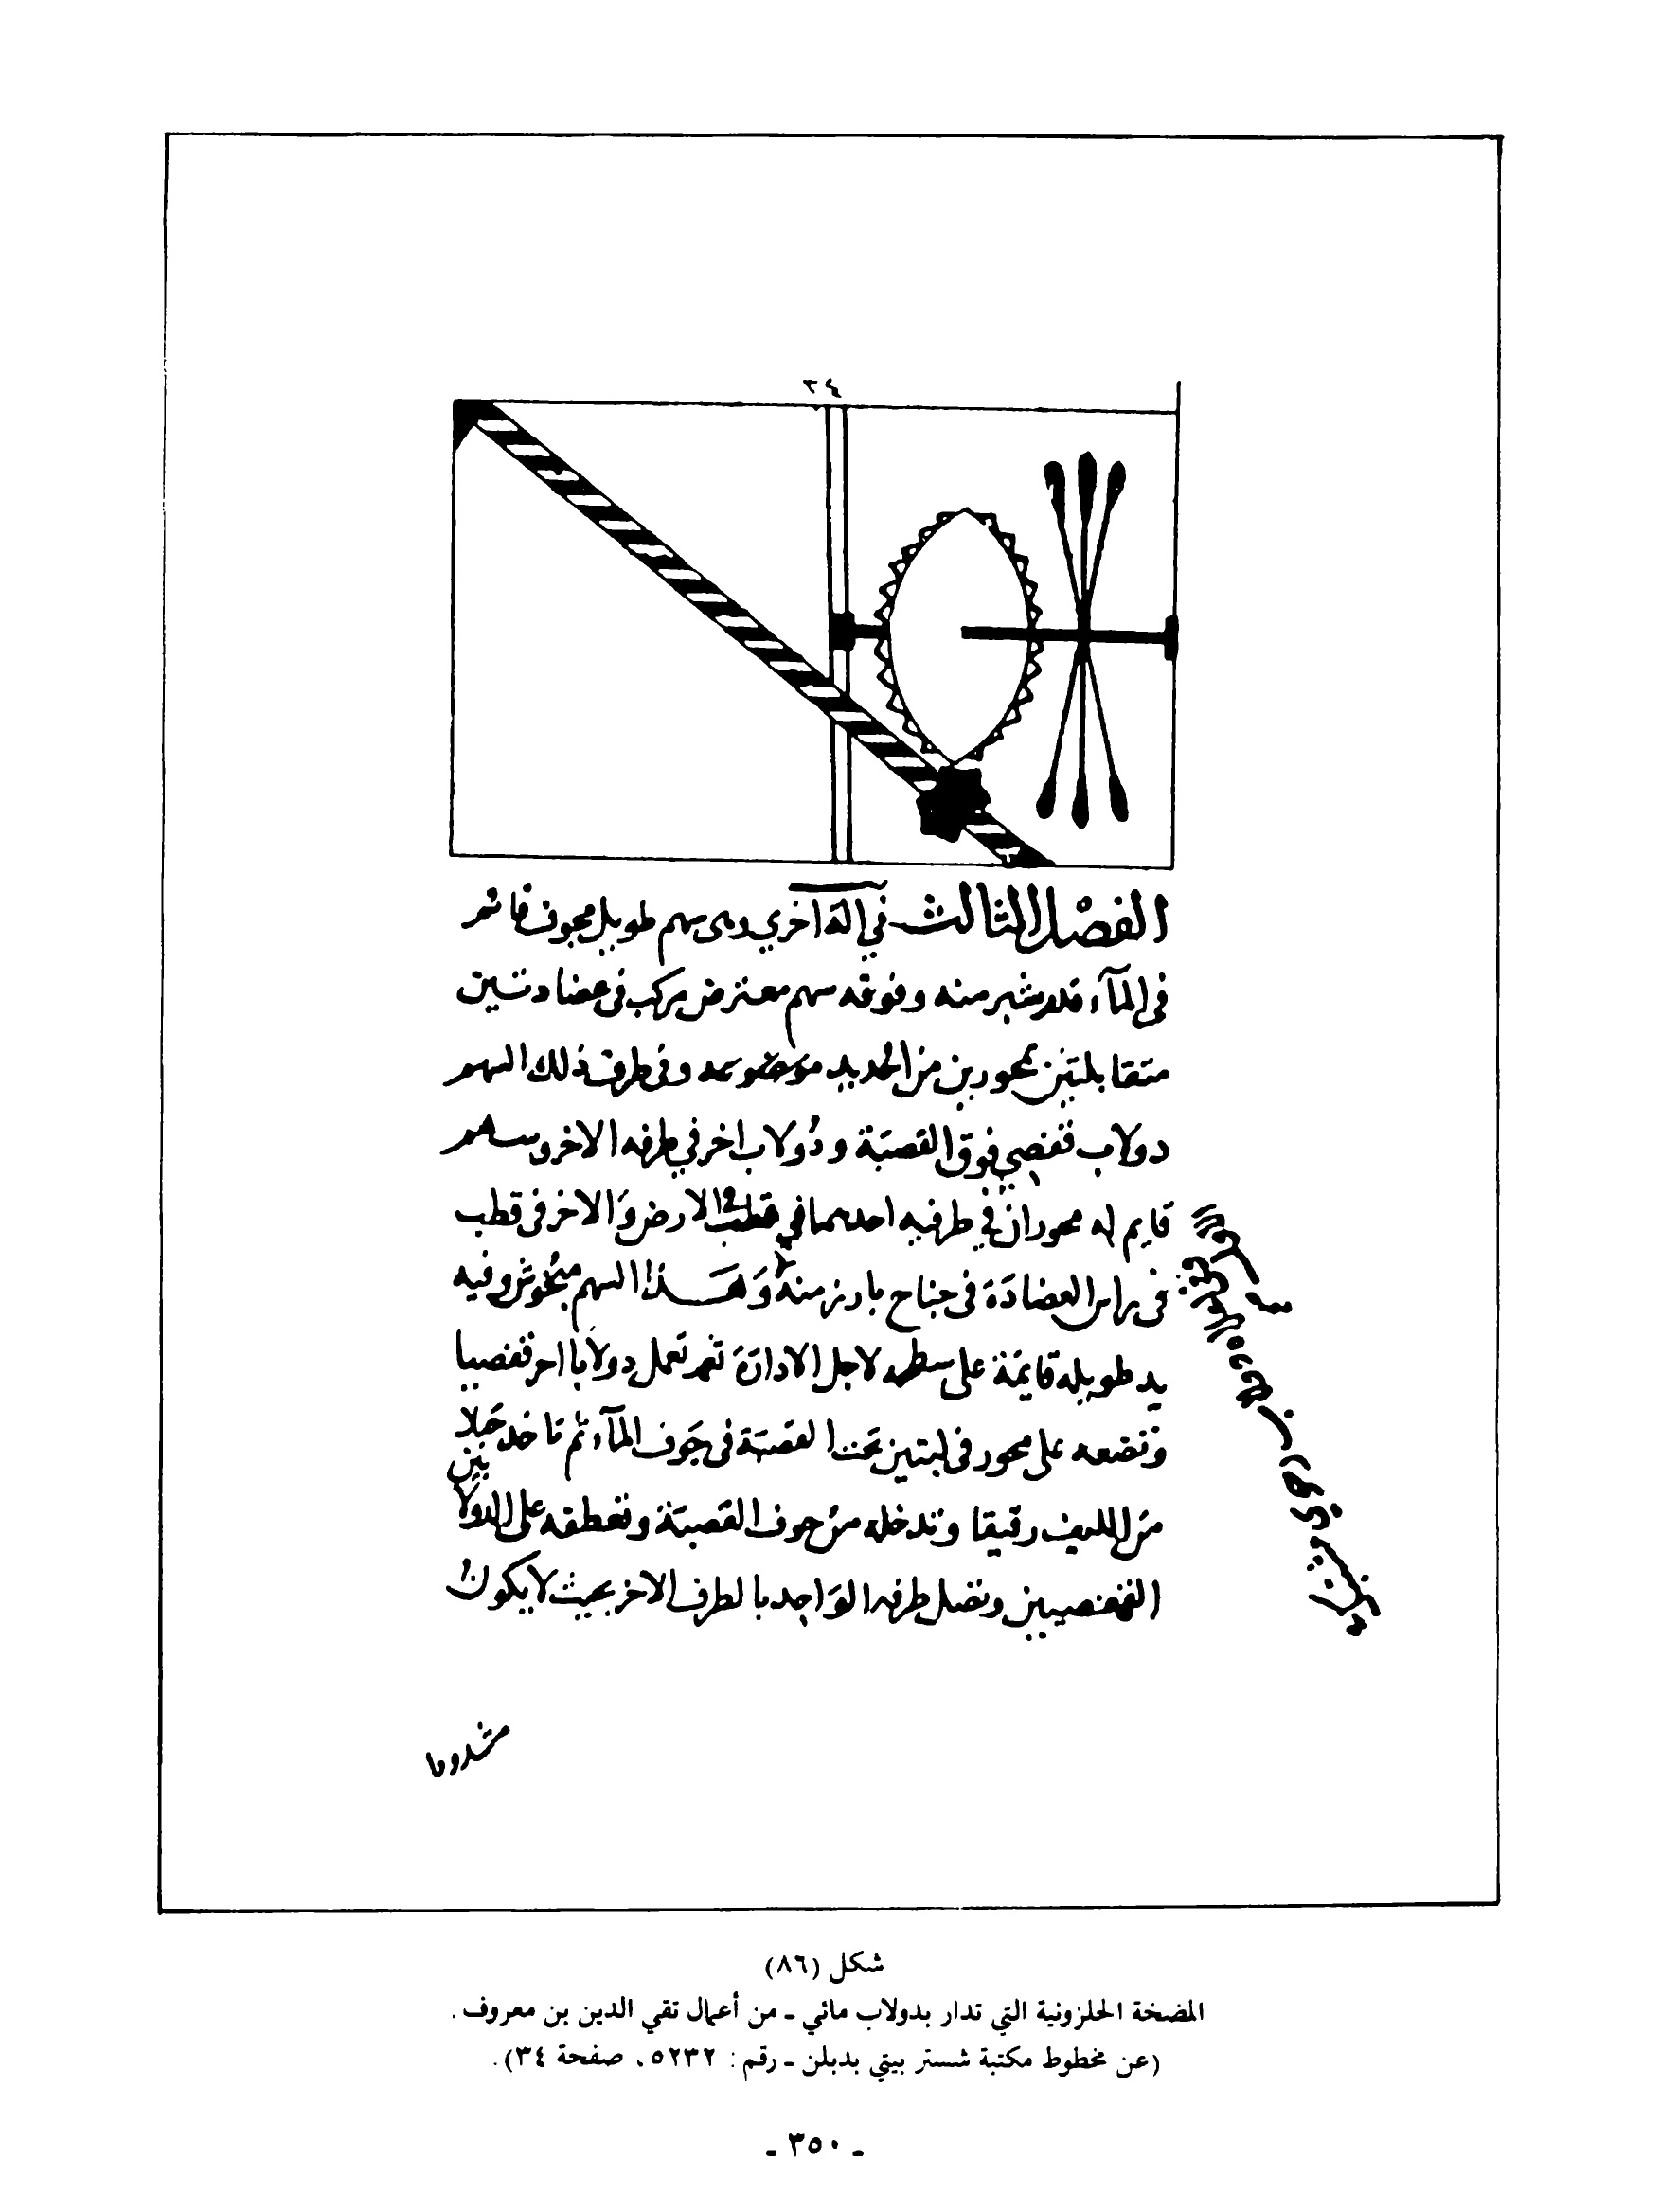 ٣٤
الفصل الثالث في الة اخري وهى سهم طويل مجوف قائم
فى المآء قدر شبر منه وفوقه سهم معترض مركب فى عضادتين
متقابلتين بمحورين من الحديد وفى طرف ذلك السهم
دولاب قفصي فوق القصبة ودولاب اخر في طرفه الاخر وسهم
قايم له محوران في طرفيه احدهما في قطب الارض والاخر فى قطب
فى راس العضادة فى جناح بارز منه وهذا السهم وفيه
يد طويله قايمة على سطحه لاجل الادارة ثم تعمل دولابا اخر قفصيا
وتضعه على محور فى لبتين تحت القصبة فى جوف المآء ثم تاخد حبلا
من الليف رقيقا وتدخله من جوف القصبة وتعطفه على الدولابين
القفصيين وتصل طرفه الواحد بالطرف الاخر بحيث لا يكون
شكل (٨٦)
المضخة الحلزونية التي تدار بدولاب مائي - من أعمال تقي الدين بن معروف.
(عن مخطوط مكتبة شستر بيتي بدبلن - رقم: ٥٢٣٢، صفحة ٣٤).
- ٣٥٠ -